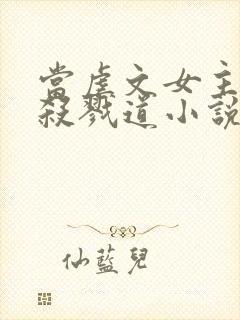 當虐文女主
殺戮道小說
仙藍兒